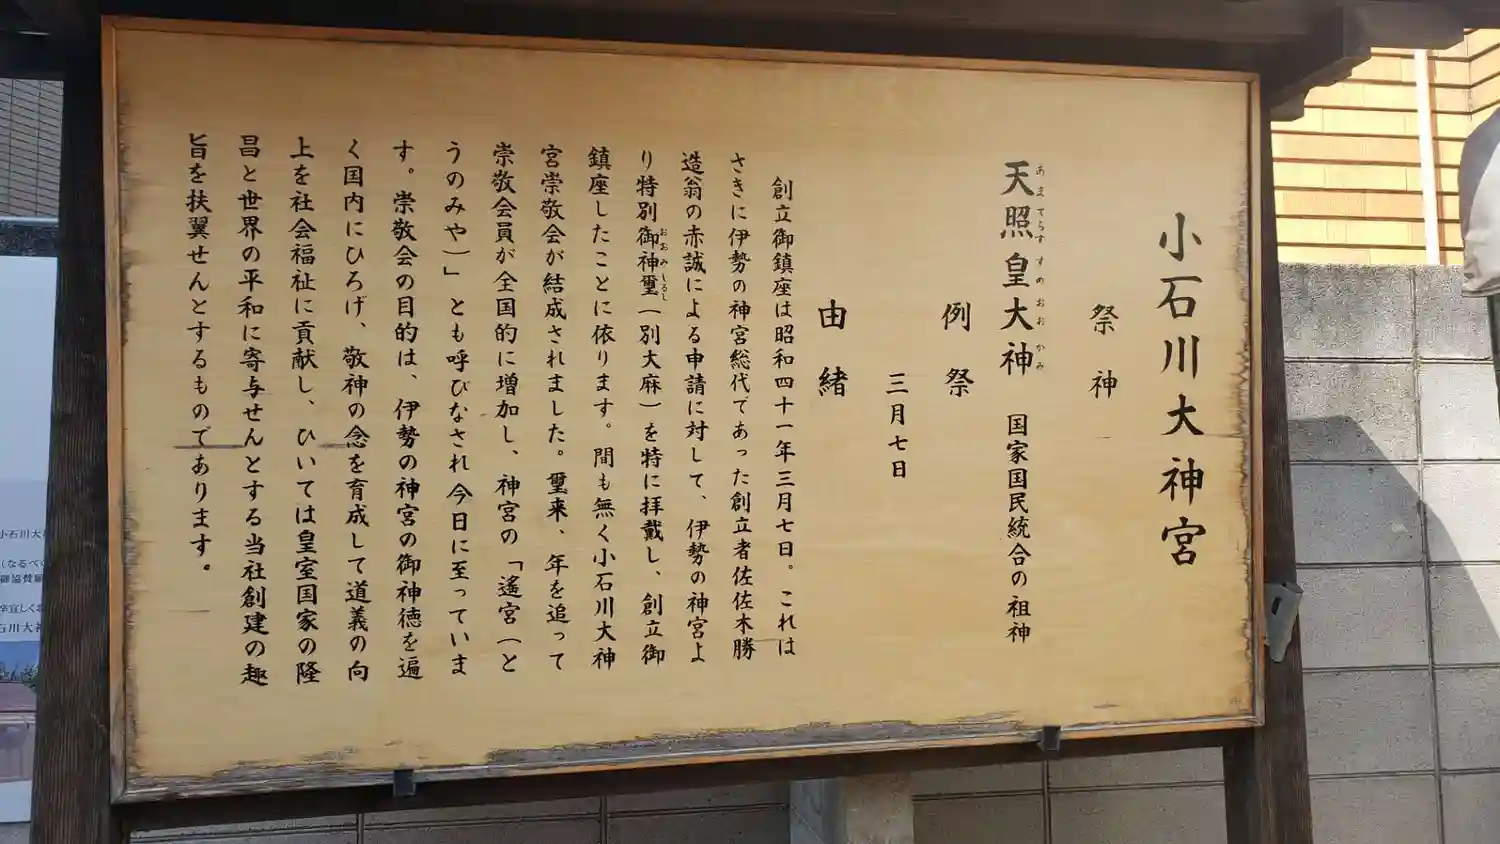 小石川大神宮
祭神
天照皇大神 国家国民統合の祖神
あまてらすすのおおかみ
例祭
三月七日
由緒
創立御鎮座は昭和四十一年三月七日。これは
さきに伊勢の神宮総代であった創立者佐佐木勝
造翁の赤誠による申請に対して、伊勢の神宮よ
り特別御神璽(別大麻)を特に拝戴し、創立御
おおみしるし
鎮座したことに依ります。間も無く小石川大神
宮崇敬会が結成されました。璽来、年を追って
崇敬会員が全国的に増加し、神宮の「遙宮(と
うのみや)」とも呼びなされ今日に至っていま
す。崇敬会の目的は、伊勢の神宮の御神徳を遍
く国内にひろげ、敬神の念を育成して道義の向
上を社会福祉に貢献し、ひいては皇室国家の隆
昌と世界の平和に寄与せんとする当社創建の趣
旨を扶翼せんとするものであります。
小石川大
(なるべ
石川大神